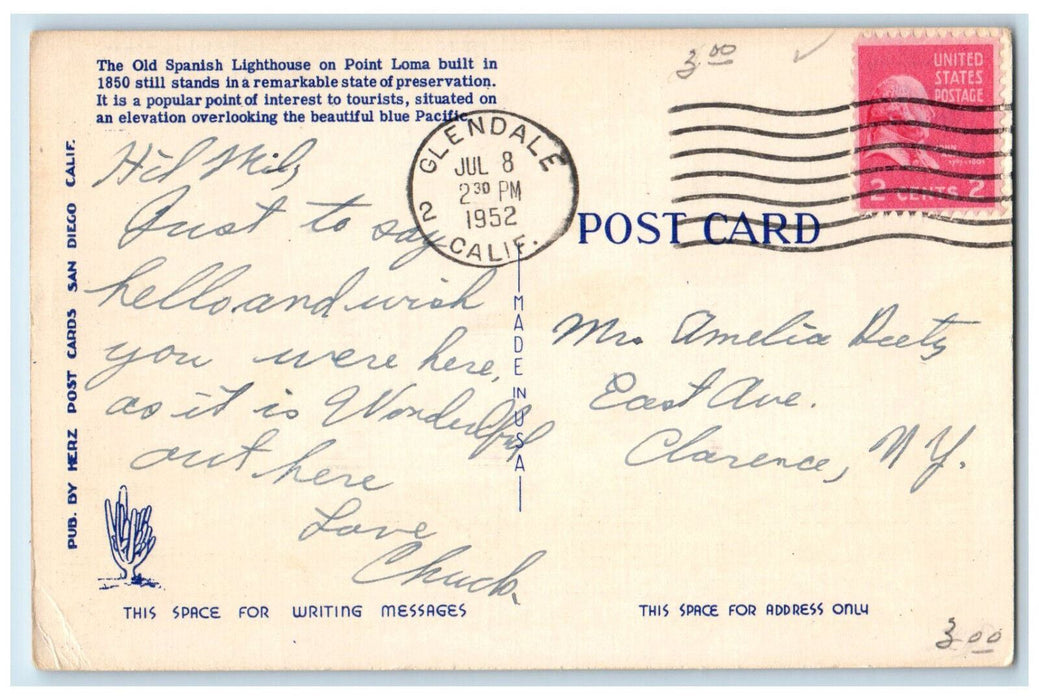 The Old Spanish Lighthouse on Point Loma built in
1850 still stands in a remarkable state of preservation.
It is a popular point of interest to tourists, situated on
an elevation overlooking the beautiful blue Pacific.
PUB. BY HERZ POST CARDS SAN DIEGO CALIF.
Just to say
hello and wish
you were here,
as it is Wonderful
out here
Love
Chuck
THIS SPACE FOR WRITING MESSAGES
GLENDALE
JUL 8
2 30 PM
1952
2 CALIF.
MADE IN USA
3.00
UNITED
STATES
POSTAGE
2 CENTS 2
POST CARD
Mrs Amelia
East Ave.
Clarence, N.Y.
THIS SPACE FOR ADDRESS ONLY
3.00